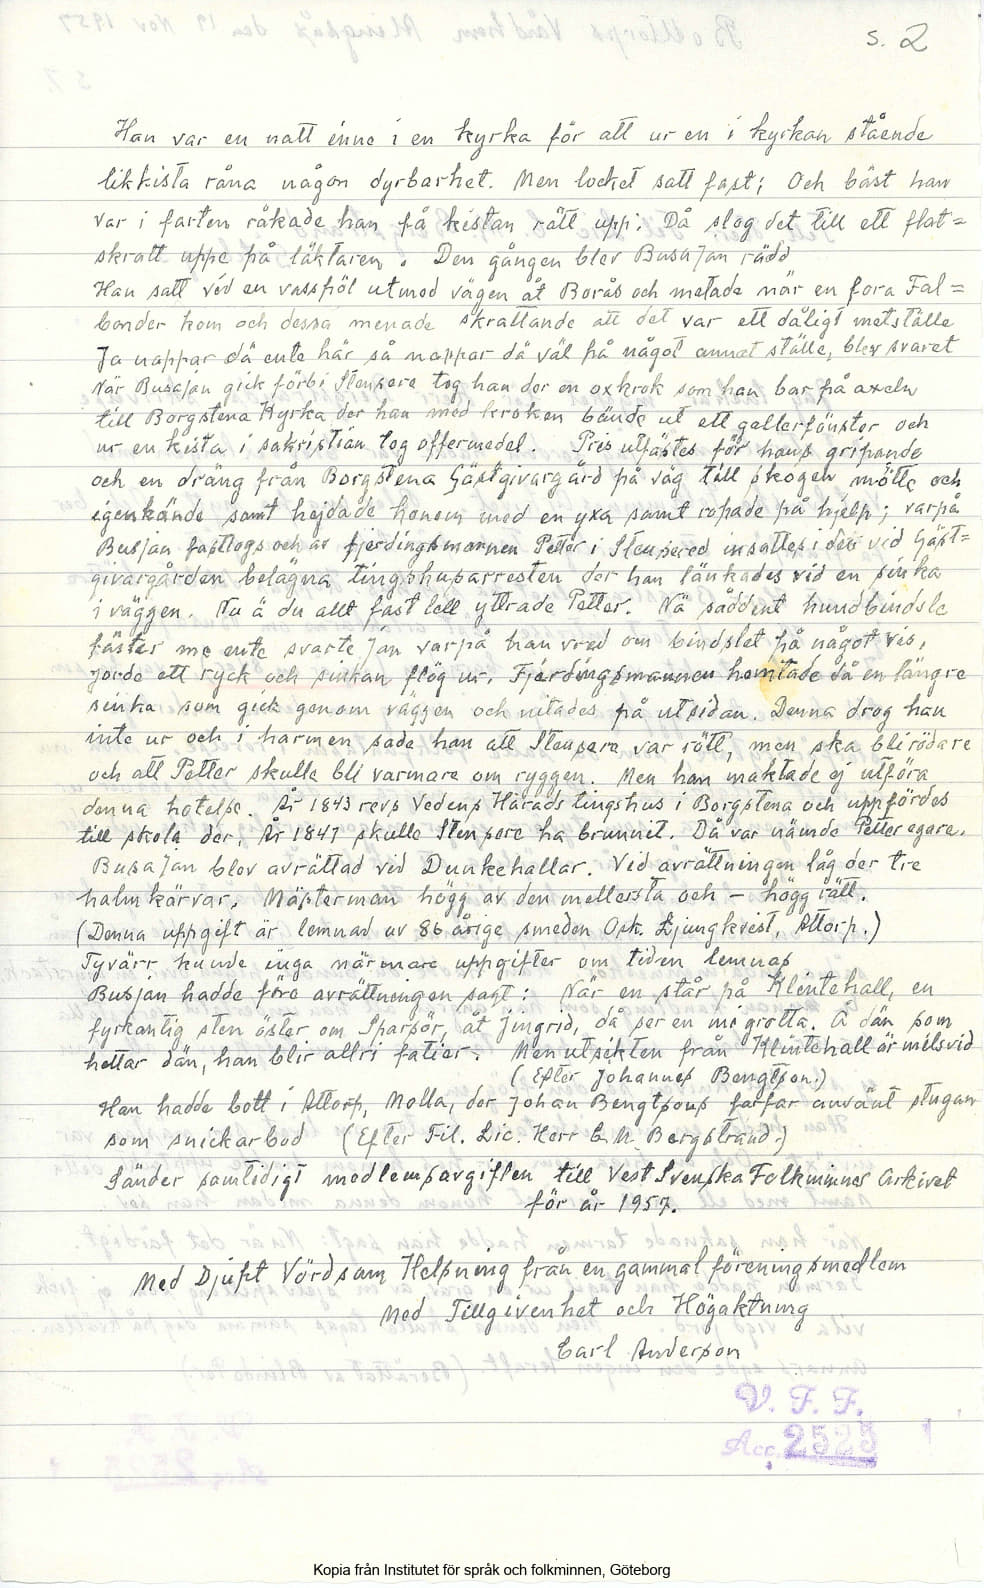 s. 2
Han var en natt inne i en kyrka för att ur en i kyrkan stående
likkista råna någon dyrbarhet. Men locket satt fast; Och bäst han
var i farten råkade han få kistan rätt upp; Då slog det till ett flat=
skratt uppe på läktaren. Den gången blev Busajan rädd
Han satt vid en vassjöl utmed vägen åt Borås och metade när en fora Fal=
bönder kom och dessa menade skrattande att det var ett dåligt metställe
Ja nappar dä ente här så nappar dä väl på något annat ställe, blev svaret
När Busajan gick förbi Stenpere tog han der en oxkrok som han bar på axeln
till Borgstena Kyrka der han med kroken bände ut ett gallerfönster och
ur en kista i sakristian tog offermedel. Pris utfästes för hans gripande
och en dräng från Borgstena Gästgivargård på väg till skogen mötte och
igenkände samt hejdade honom med en yxa samt ropade på hjelp; varpå
Busjan fasttogs och av fjerdingsmannen Petter i Stenpered insattes i den vid Gäst=
givargården belägna tingshusarresten der han länkades vid en sinka
i väggen. Nu ä du allt fast lell yttrade Petter. Nä såddent hundbindsle
fäster me ente svarte Jan varpå han vred om bindslet på något vis,
jorde ett ryck och sinkan flög ur. Fjerdingsmannen hemtade då en längre
sinka som gick genom väggen och nitades på utsidan. Denna drog han
inte ur och i harmen sade han att Stenpere var rött, men ska bli rödare
och att Petter skulle bli varmare om ryggen. Men han maktade ej utföra
denna hotelse. År 1843 revs Vedens Härads tingshus i Borgstena och uppfördes
till skola der. År 1847 skulle Stenpere ha brunnit. Då var nämde Petter egare.
Busajan blev avrättad vid Dunkehallar. Vid avrättningen låg der tre
halmkärvar. Mästerman högg av den mellersta och – högg rätt.
(Denna uppgift är lemnad av 86 årige smeden Osk. Ljungkvist, Attorp.)
Tyvärr kunde inga närmare uppgifter om tiden lemnas
Busjan hadde före avrättningen sagt: När en står på Klintehall, en
fyrkantig sten öster om Sparsör, åt Jingrid, då ser en mi grotta. Å dän som
hettar dän, han blir allri fatier. Men utsikten från Klintehall är milsvid
(Efter Johannes Bengtson.)
Han hadde bott i Attorp, Molla, der Johan Bengtsons farfar använt stugan
som snickarbod (Efter Fil. Lic. Herr C. M. Bergstrand.)
Sänder samtidigt medlemsavgiften till VestSvenska Folkminnes Arkivet
för år 1957.
Med Djupt Vördsam Helsning från en gammal föreningsmedlem
Med Tillgivenhet och Högaktning
Carl Anderson
V. F. F.
Acc. 2525
Kopia från Institutet för språk och folkminnen, Göteborg